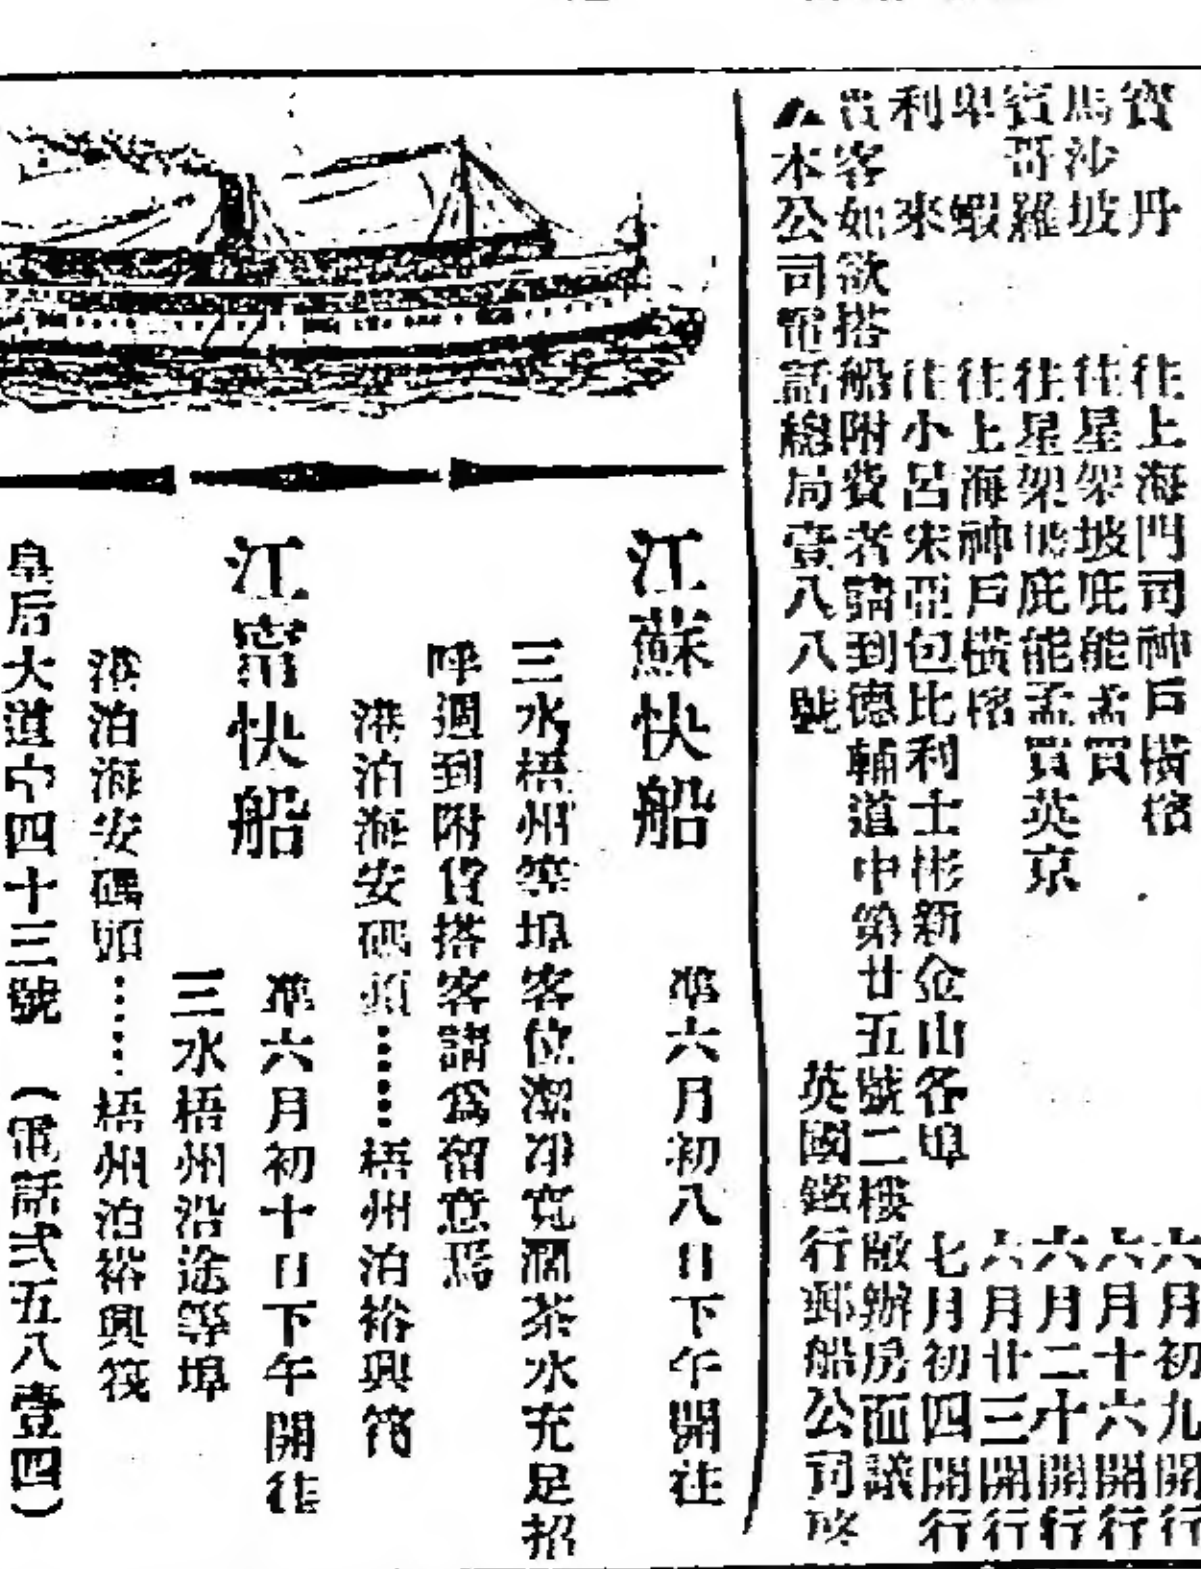 寶丹 往上海門司神戶橫檳 六月初九開行
馬沙坡 往星架坡庇能孟買 六月十六開行
賓哥羅 往星架坡庇能孟買英京 六月二十開行
卑蝦 往上海神戶橫檳 六月廿三開行
利來 往小呂宋亞包比利士彬新金山各埠 七月初四開行
貴客如欲搭船附貨者請到德輔道中第廿五號二樓敝辦房面議
本公司電話總局壹八八號 英國鐵行郵船公司啓
江蘇快船 準六月初八日下午開往
三水梧州等埠客位潔淨寬濶茶水充足招
呼週到附貨搭客請爲留意焉
港泊海安碼頭⋯⋯梧州泊裕興筏
江甯快船 準六月初十日下午開往
三水梧州沿途等埠
港泊海安碼頭⋯⋯梧州泊裕興筏
皇后大道中四十三號 (電話弍五八壹四)